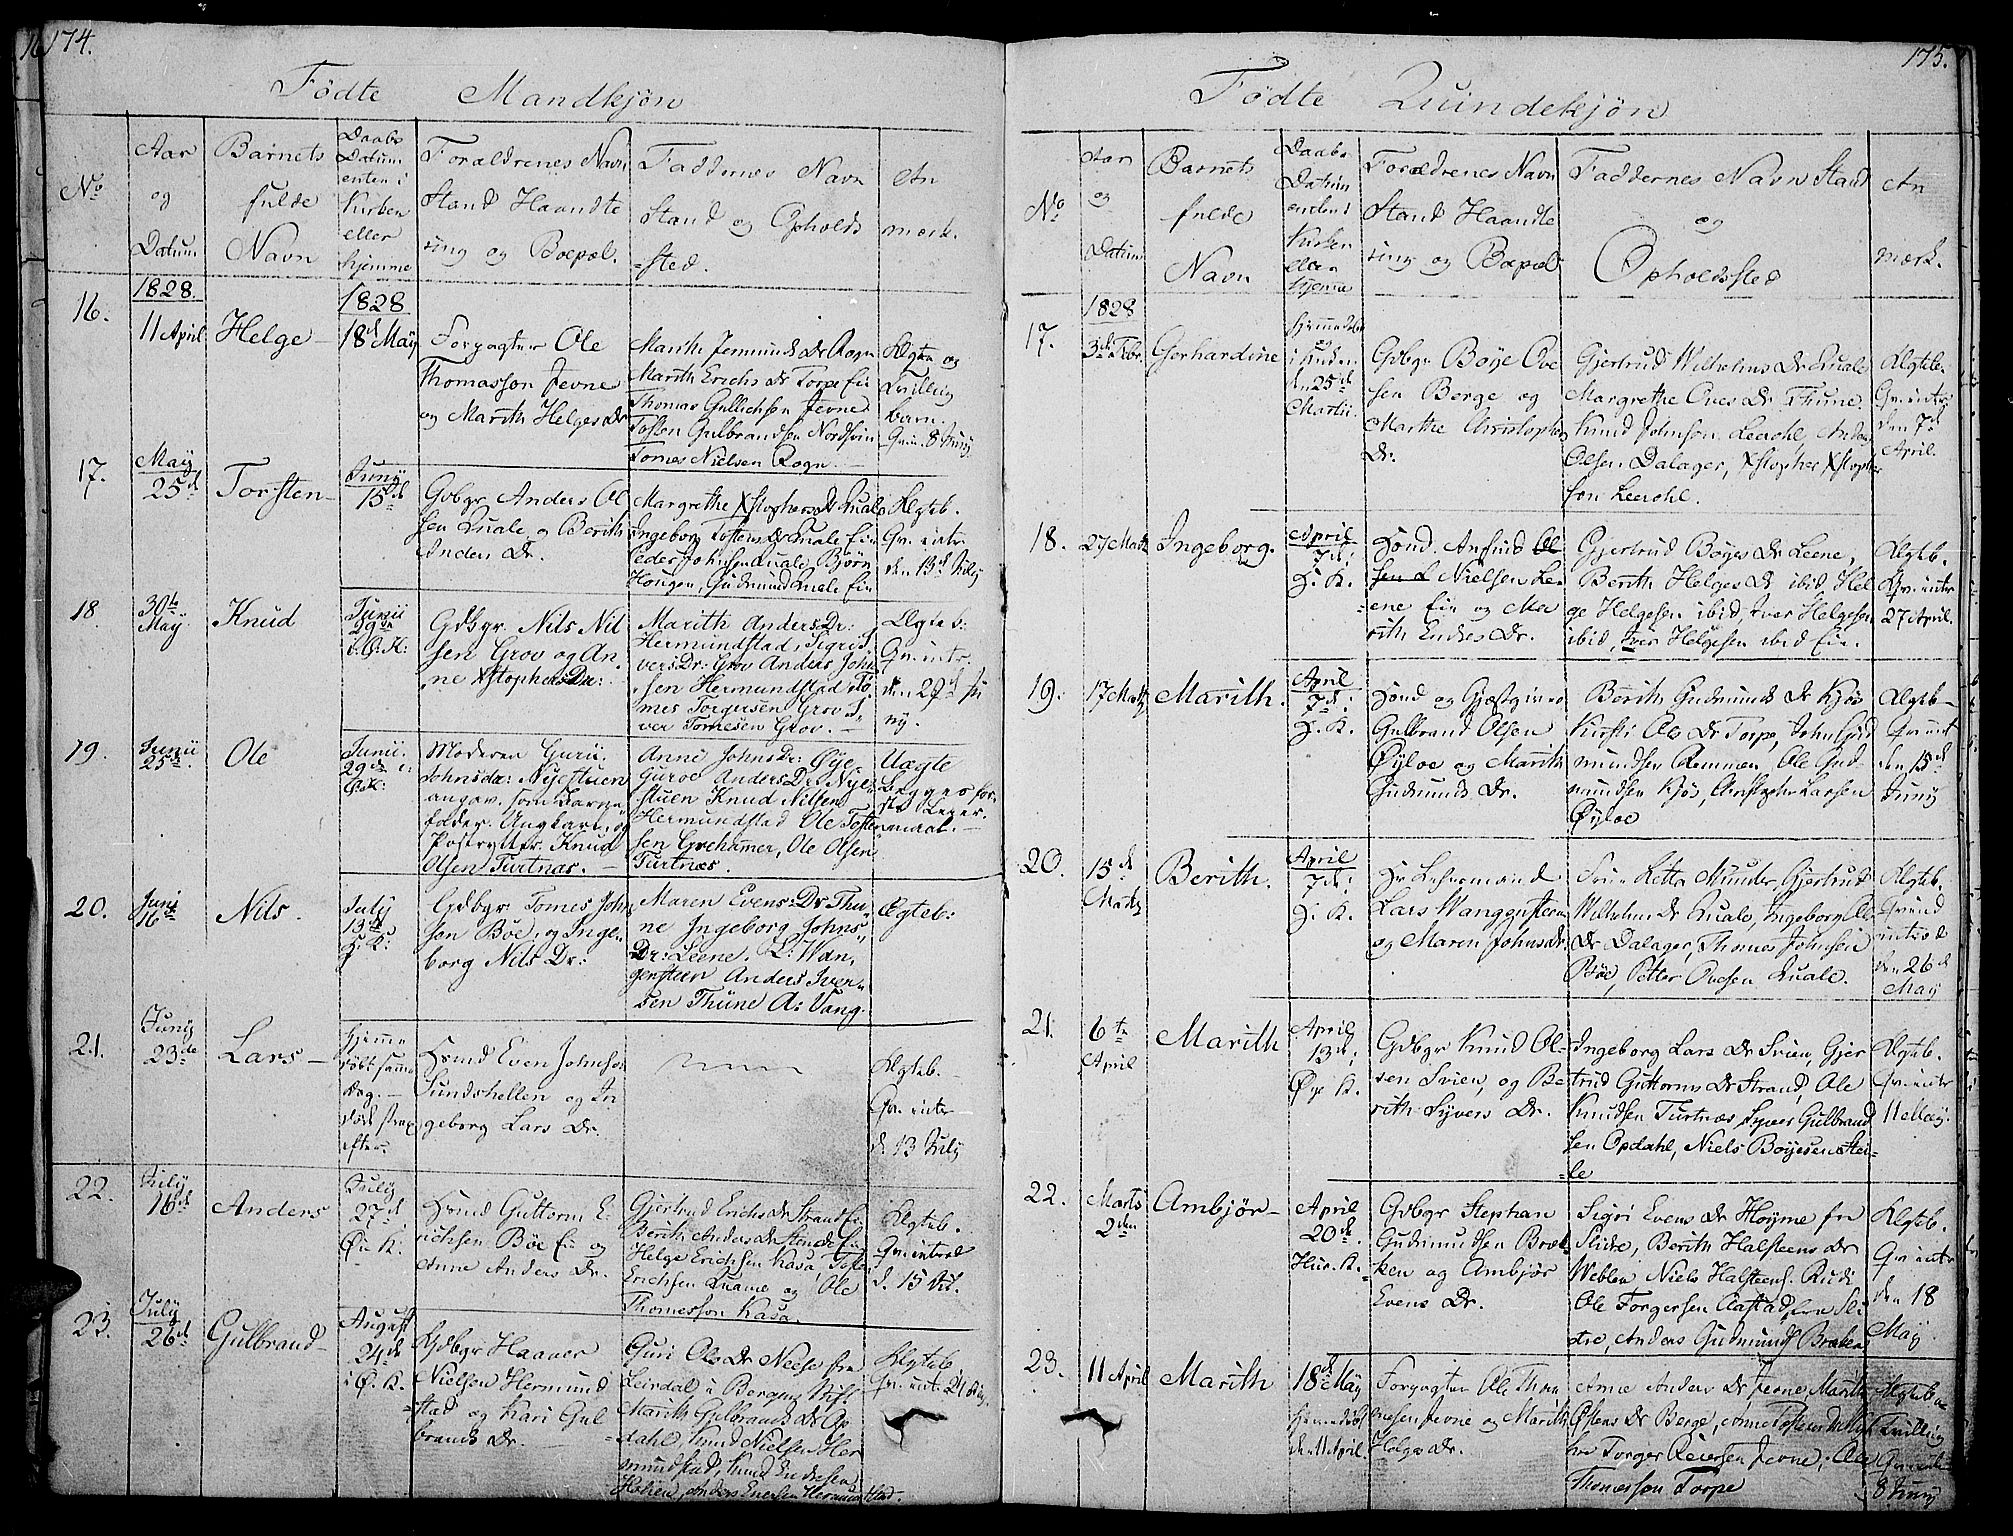 174.
Födte Mandkjön
No
Aar og Datum
Barnets fulde Navn
Daabs Datum enten i Kirken eller hjemme
Forældrenes Navn Stand Haandtering og Boepæl.
Faddernes Navn Stand og Opholdssted.
Anmærk.
16.
1828.
11 April
Helge
1828
18de May
Forpagter Ole
Thomasson Jevne
og Marith Helges Dr
Marthe Jermunds Dr Rogn
Marith Erichs Dr Torpe Eie
Thomas Gullichsen Jevne
Tosten Gulbrandsen Nordsvin
Tomes Nielsen Rogn
Ægte og
Tvilling
barn.
Qv. i. 8 Juny
17.
May
25d
Torsten
Juny
15de
Gdbgr Anders Ol
sen Quale og Berith
Anders Dr.
Margrethe Xstophers Dr Quale
Ingeborg Tostens Dr Quale Eie
Peder Johnsen Quale, Björn
Hougen, Gudmund Quale Eie
Ægteb.
Qv. intr
den 13d July
18.
30te
May
Knud
Junii
29de
i Ö. K:
Gdbgr. Nils Nil
sen Grov og An,
ne Xstophers Dr:
Marith Anders Dr:
Hermundstad, Sigri I,
vers Dr: Grov Anders John
sen Hermundstad To
mes Torgersen Grov I,
ver Tomesen Grov.
Ægteb:
Qv. intr.
den 29d Ju
ny.
19.
Junii
25de.
Ole
Junii.
29de i
Ö.K:
Moderen Guri
Johnsdr: Nyestuen
angav. som Barne
fader. Ungkarl, og
Postrytter. Knud
Olsen Turtnæs.
Anne Johns Dr: Øye
Guroe Anders Dr Nye
stuen Knud Nilsen
Hermundstad Ole Tosten
sen Grehamer, Ole Olsen
Turtnæs.
Uægte
begges for
ste Leier.
maal.
20.
Juni
16de
Nils.
July
13de
H: K:
Gdbgr Tomes John
son Böe, og Inge,
borg Nils Dr:
Maren Evens: Dr Thu
ne Ingeborg Johns
Dr: Leene. L: Wan,
gensteen Anders Iver
sen Thüne A: Vang.
Ægteb:
21.
Juny
23de
Lars
hjemme
döbt samme
Dag.
död strax
efter.
Hmd Even Johnson
Sundshellen og In
geborg Lars Dr.
Ægteb.
Qv. intr
d. 13 July
22.
July
16de
Anders
July
27de
Ö. K.
Hmd Guttorm E.
richsen Böe Eie og
Anne Anders Dr.
Gjertrud Erichs Dr Strand Eie
Berith Anders Dr Stende Eie
Helge Erichsen Kasa, Tosten
Erichsen Quame og Ole
Thomesson Kasa.
Ægteb.
Qv. introd
23.
July
26d
Gulbrand
August
24de
i Ö. K.
Gdbgr Haaver
Nielsen Hermund
stad og Kari Gul
brands Dr.
Guri Ols Dr Neese fra
Leirdal i Bergens Stift
Marith Gulbrands Dr Op
dahl, Knud Nielsen Her
mundstad, Knud Endresen
Holien, Anders Enersen Hermundstad.
Ægteb.
175.
Födte Quindekjön
No
Aar og Datum
Barnets fulde Navn
Daabs Datum enten i Kirken eller hjemme
Forældrenes Navn Stand Haandtering og Boepæl
Faddernes Navn Stand og Opholdssted
Anmærk.
17.
1828
3de Febr.
Gerhardine
hjemmedöbt
i Kirken
den 25de
Martii.
Gdbgr Böye Ove
sen Berge og
Marthe Christophers
Dr.
Gjertrud Wilhelms Dr Quale
Margrethe Oves Dr Thune
Knud Johnson Leerohl, Anders
Olsen Dalager, Xstopher Xstopher
son Leerohl.
Ægteb.
Qv. intr
den 7d
April.
18.
27 Marts
Ingeborg.
April
7de
H. K.
Hmd. Ansund Ol
sen L Nielsen Le-
ene Eie og Ma
rith Endres Dr.
Gjertrud Böyes Dr Leene,
Berith Helges Dr ibid, Hel
ge Helgesen ibid, Iver Helgesen
ibid, Iver Helgesen ibid Eie.
Ægteb.
Qv. intr
27 April.
19.
17 Marts
Marith.
April
7de
H. K.
Hmd og Gjæstgiver
Gulbrand Olsen
Øyloe og Marith
Gudmunds Dr.
Berith Gudmunds Dr Kjös
Kirsti Ols Dr Torpe, John Gud
mundsen Remmen, Ole Gud-
mundsen Kjös, Christopher Larsen
Øyloe
Ægteb-
Qv intr
den 15d
Juny
20.
15de
Marts
Berith.
April
7de
H. K.
Hr Lehnsmand
Lars Wanggensteen
og Maren Johnsdr.
Frue Letta Munder, Gjertrud
Wilhelms Dr Quale, Ingeborg Ols
Dr Dalager, Thomes Johnsen
Böe, Petter Ovesen Quale.
Ægteb.
introd
den 26d
May
21.
6te
April
Marith
April
13de
Öye K.
Gdbgr Knud Ol-
sen Svien, og Be
rith Syvers Dr.
Ingeborg Lars Dr Svien, Gjer
trud Guttorms Dr Strand, Ole
Knudsen Turtnæs, Syver Gulbrand
sen Opdahl, Niels Böyesen Stei-
le
Ægteb.
Qv. intr
11 May.
22.
Marts
2den
Ambjör
April
20de
Hur. K.
Gdbgr Stephan
Gudmundsen Bræk
ken og Ambjör
Evens Dr.
Sigri Evens Dr Höyme fra
Slidre, Berith Halsteens Dr
Weblen Niels Halsteens. Rudi
Ole Torgersen Aastad, fra Sli
dre, Anders Gudmunds Bræken
Ægteb.
Qv. intr
den 18
May.
23.
11 April
Marith
18de May
hjemmedöbt
den 11 April.
Forpagter Ole Thom
mesen Jevne og Marith
Helges Dr.
Anne Anders Dr Jevne, Marith
Östens Dr Berge, Anne Tostens Dr
Torger Reiersen Jevne, Ole
Thomesson Torpe
Ægteb
Tvilling
8 Juny